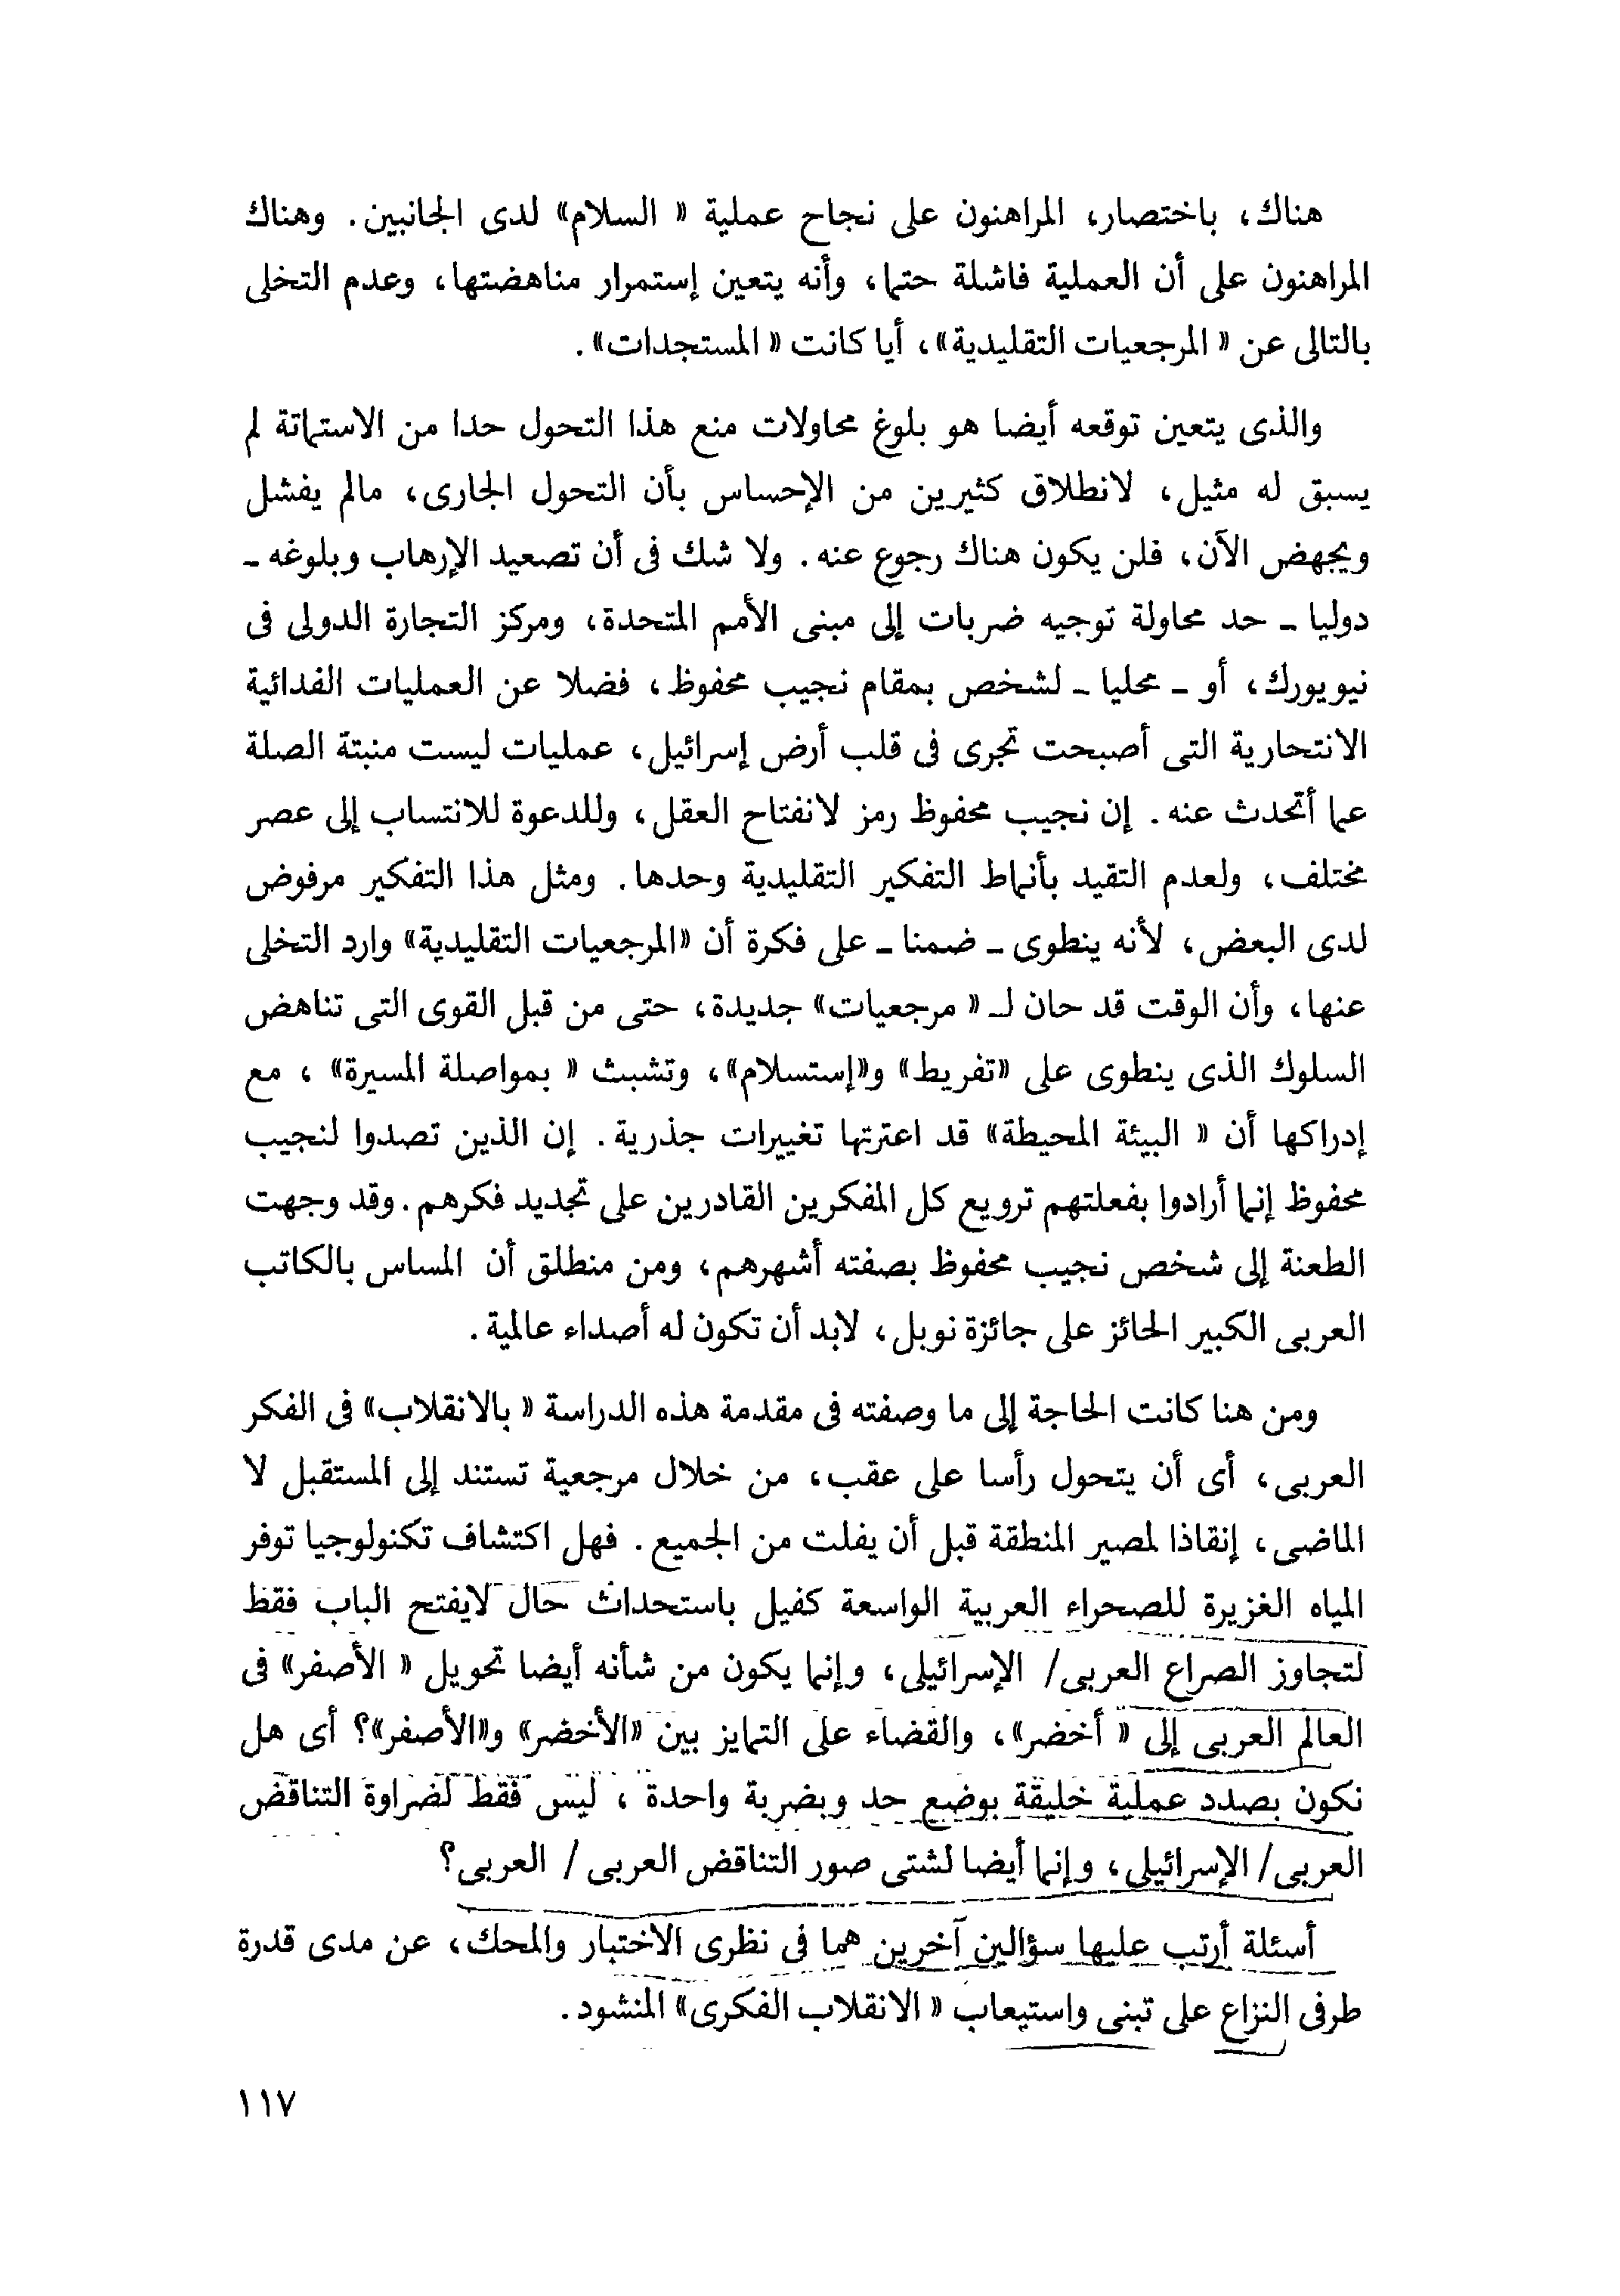 هناك، باختصار، المراهنون على نجاح عملية « السلام» لدى الجانبين. وهناك
المراهنون على أن العملية فاشلة حتما، وأنه يتعين إستمرار مناهضتها، وعدم التخلى
بالتالى عن « المرجعيات التقليدية»، أيا كانت « المستجدات».
والذى يتعين توقعه أيضا هو بلوغ محاولات منع هذا التحول حدا من الاستماتة لم
يسبق له مثيل، لانطلاق كثيرين من الإحساس بأن التحول الجارى، مالم يفشل
ويجهض الآن، فلن يكون هناك رجوع عنه. ولا شك فى أن تصعيد الإرهاب وبلوغه ـ
دوليا ـ حد محاولة توجيه ضربات إلى مبنى الأمم المتحدة، ومركز التجارة الدولى فى
نيويورك، أو ـ محليا ـ لشخص بمقام نجيب محفوظ، فضلا عن العمليات الفدائية
الانتحارية التى أصبحت تجرى فى قلب أرض إسرائيل، عمليات ليست منبتة الصلة
عما أتحدث عنه. إن نجيب محفوظ رمز لانفتاح العقل، وللدعوة للانتساب إلى عصر
مختلف، ولعدم التقيد بأنماط التفكير التقليدية وحدها. ومثل هذا التفكير مرفوض
لدى البعض، لأنه ينطوى ـ ضمنا ـ على فكرة أن «المرجعيات التقليدية» وارد التخلى
عنها، وأن الوقت قد حان لـ « مرجعيات» جديدة، حتى من قبل القوى التى تناهض
السلوك الذى ينطوى على «تفريط» و«إستسلام»، وتشبث « بمواصلة المسيرة» ، مع
إدراكها أن « البيئة المحيطة» قد اعترتها تغييرات جذرية. إن الذين تصدوا لنجيب
محفوظ إنما أرادوا بفعلتهم ترويع كل المفكرين القادرين على تجديد فكرهم. وقد وجهت
الطعنة إلى شخص نجيب محفوظ بصفته أشهرهم، ومن منطلق أن المساس بالكاتب
العربى الكبير الحائز على جائزة نوبل، لابد أن تكون له أصداء عالمية.
ومن هنا كانت الحاجة إلى ما وصفته فى مقدمة هذه الدراسة « بالانقلاب» فى الفكر
العربى، أى أن يتحول رأسا على عقب، من خلال مرجعية تستند إلى المستقبل لا
الماضى، إنقاذا لمصير المنطقة قبل أن يفلت من الجميع. فهل اكتشاف تكنولوجيا توفر
المياه الغزيرة للصحراء العربية الواسعة كفيل باستحداث حال لايفتح الباب فقط
لتجاوز الصراع العربى/ الإسرائيلى، وإنما يكون من شأنه أيضا تحويل « الأصفر» فى
العالم العربى إلى « أخضر»، والقضاء على التمايز بين «الأخضر» و«الأصفر»؟ أى هل
نكون بصدد عملية خليقة بوضع حد وبضربة واحدة ، ليس فقط لضراوة التناقض
العربى/ الإسرائيلى، وإنما أيضا لشتى صور التناقض العربى / العربى؟
أسئلة أرتب عليها سؤالين آخرين هما فى نظرى الاختبار والمحك، عن مدى قدرة
طرفى النزاع على تبنى واستيعاب « الانقلاب الفكرى» المنشود.
١١٧